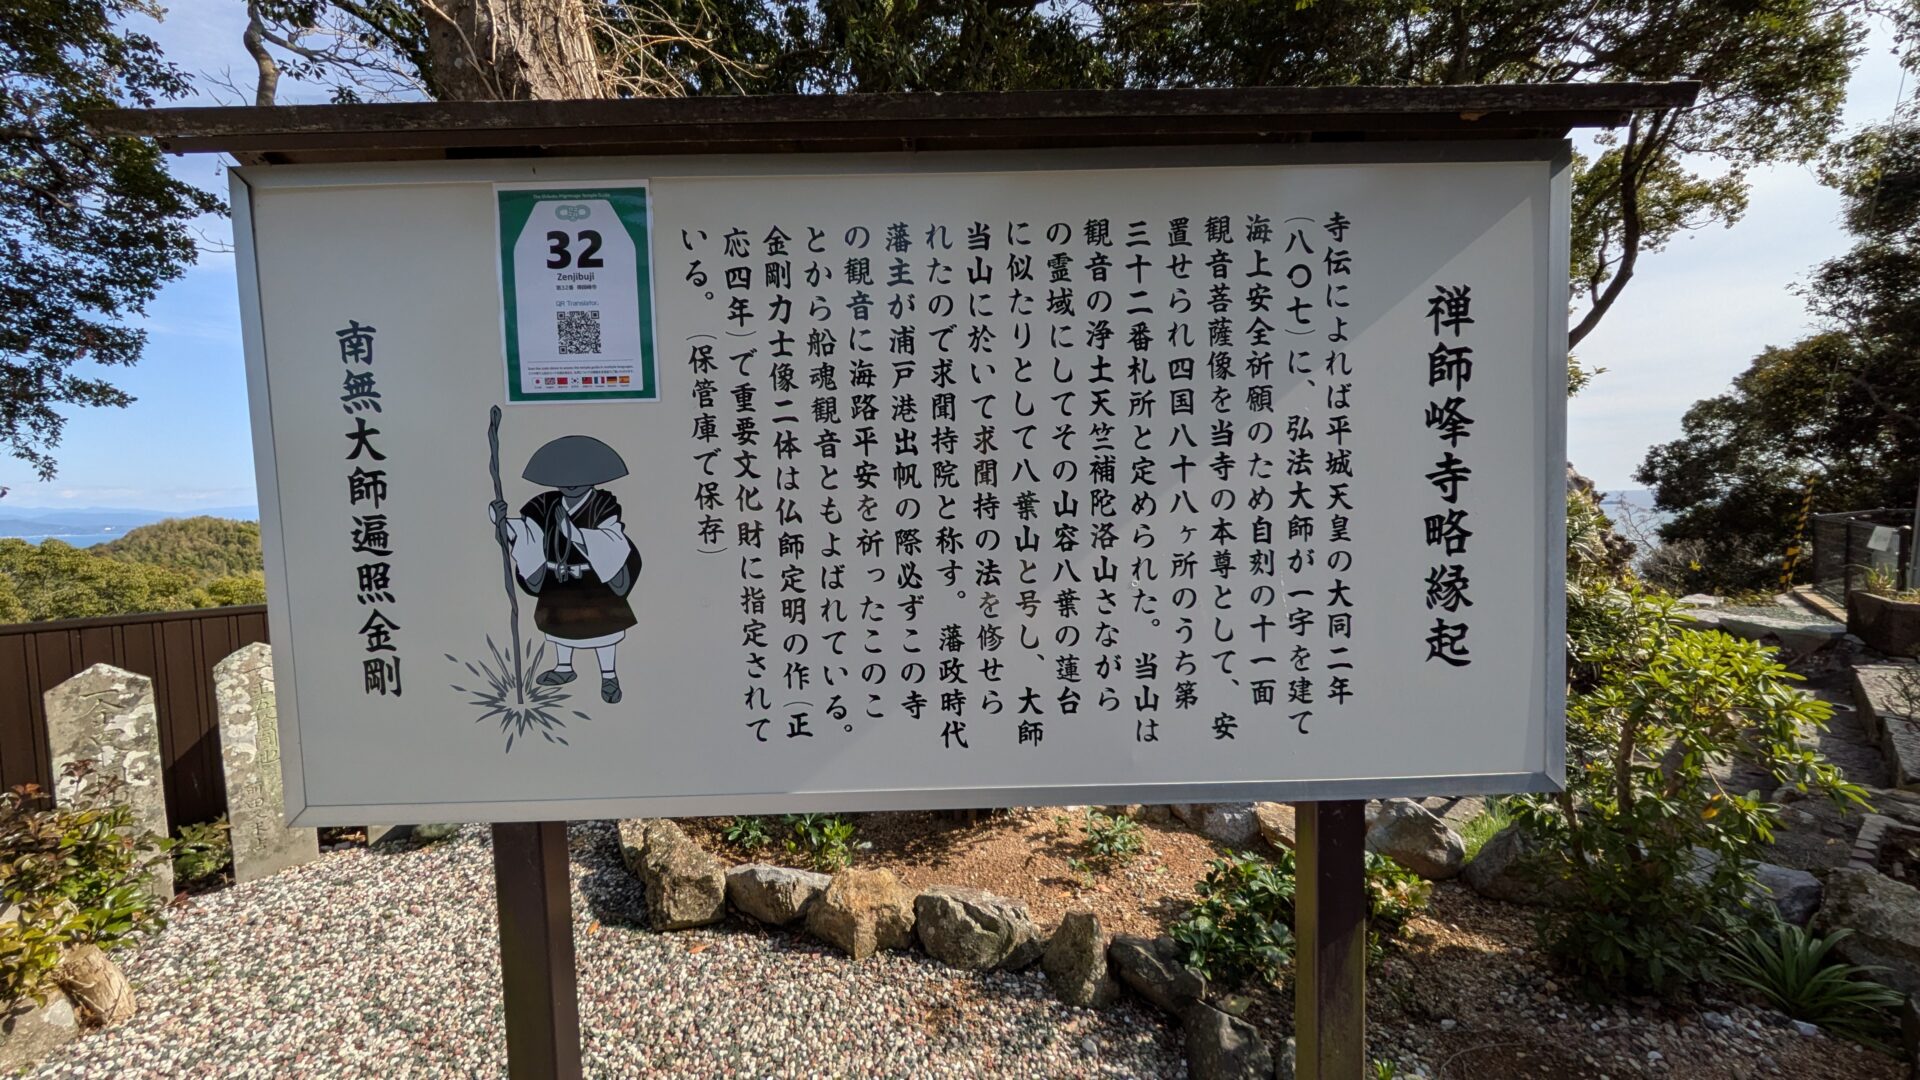 禅師峰寺略縁起
寺伝によれば平城天皇の大同二年
(八〇七)に、弘法大師が一宇を建て
海上安全祈願のため自刻の十一面
観音菩薩像を当寺の本尊として、安
置せられ四国八十八ヶ所のうち第
三十二番札所と定められた。当山は
観音の浄土天竺補陀洛山さながら
の霊域にしてその山容八葉の蓮台
に似たりとして八葉山と号し、大師
当山に於いて求聞持の法を修せら
れたので求聞持院と称す。藩政時代
藩主が浦戸港出帆の際必ずこの寺
の観音に海路平安を祈ったこのこ
とから船魂観音ともよばれている。
金剛力士像二体は仏師定明の作(正
応四年)で重要文化財に指定されて
いる。(保管庫で保存)
The Shikoku Pilgrimage Temple Guide
32
Zenjibuji
第32番 禅師峰寺
QR Translator
南無大師遍照金剛